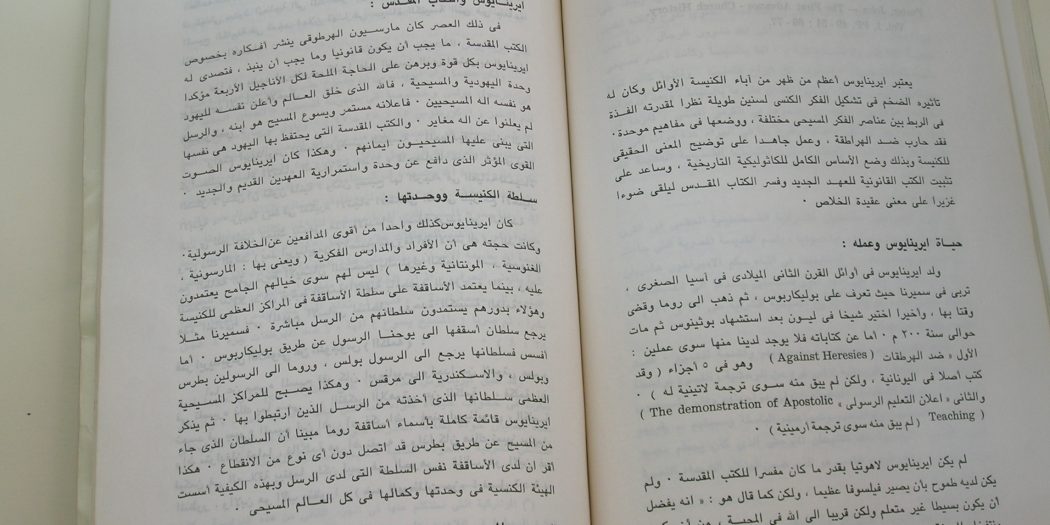 يعتبر ايرينايوس أعظم من ظهر من آباء الكنيسة الأوائل وكان له
تاثيره الضخم فى تشكيل الفكر الكنسى لسنين طويلة نظرا لمقدرته الفذة
فى الربط بين عناصر الفكر المسيحى مختلفة ، ووضعها فى مفاهيم موحدة.
فقد حارب ضد الهراطقة ، وعمل جاهدا على توضيح المعنى الحقيقى
للكنيسة وبذلك وضع الأساس الكامل للكاثوليكية التاريخية ، وساعد على
تثبيت الكتب القانونية للعهد الجديد وفسر الكتاب المقدس ليلقى ضوءا
غزيرا على معنى عقيدة الخلاص .
حياة ايرينايوس وعمله :
ولد ايرينايوس فى أوائل القرن الثانى الميلادى فى آسيا الصغرى ،
تربى فى سميرنا حيث تعرف على بوليكاربوس ، ثم ذهب الى روما وقضى
وقتا بها ، واخيرا اختير شيخا فى ليون بعد استشهاد بوثينوس ثم مات
حوالى سنة ٢٠٠ م . اما عن كتاباته فلا يوجد لدينا منها سوى عملين :
الأول « ضد الهرطقات ( Against Heresies ) وهو فى ٥ أجزاء ( وقد
كتب أصلا فى اليونانية ، ولكن لم يبق منه سوى ترجمة لاتينية له ) .
والثانى « اعلان التعليم الرسولى » The demonstration of Apostolic )
( Teaching ( لم يبق منه سوى ترجمة أرمينية ) .
لم يكن ايرينايوس لاهوتيا بقدر ما كان مفسرا للكتب المقدسة . ولم
يكن لديه طموح بأن يصير فيلسوفا عظيما ، ولكن كما قال هو : « انه يفضل
أن يكون بسيطا غير متعلم ولكن قريبا الى الله فى المحبة ، من أن
ايرينايوس والكتاب المقدس :
فى ذلك العصر كان مارسيون الهرطوقى ينشر أفكاره بخصوص
الكتب المقدسة ، ما يجب أن يكون قانونيا وما يجب أن ينبذ ، فتصدى له
ايرينايوس بكل قوة وبرهن على الحاجة الملحة لكل الأناجيل الأربعة مؤكدا
وحدة اليهودية والمسيحية ، فالله الذى خلق العالم وأعلن نفسه لليهود
هو نفسه اله المسيحيين . فاعلانه مستمر ويسوع المسيح هو ابنه ، والرسل
لم يعلنوا عن اله مغاير . والكتب المقدسة التى يحتفظ بها اليهود هى نفسها
التى يبنى عليها المسيحيون ايمانهم . وهكذا كان ايرينايوس الصوت
القوى المؤثر الذى دافع عن وحدة واستمرارية العهدين القديم والجديد .
سلطة الكنيسة ووحدتها :
كان ايرينايوس كذلك واحدا من أقوى المدافعين عن الخلافة الرسولية.
وكانت حجته هى أن الأفراد والمدارس الفكرية ( ويعنى بها : المارسونية ،
الغنوسية ، المونتانية وغيرها ) ليس لهم سوى خيالهم الجامح يعتمدون
عليه ، بينما يعتمد الأساقفة على سلطة الأساقفة فى المراكز العظمى للكنيسة
وهؤلاء بدورهم يستمدون سلطانهم من الرسل مباشرة . فسميرنا مثلا
يرجع سلطان أسقفها الى يوحنا الرسول عن طريق بوليكاربوس . أما
أفسس فسلطانها يرجع الى الرسول بولس ، وروما الى الرسولين بطرس
وبولس ، والاسكندرية الى مرقس . وهكذا يصبح للمراكز المسيحية
العظمى سلطانها الذى أخذته من الرسل الذين ارتبطوا بها . ثم يذكر
ايرينايوس قائمة كاملة بأسماء أساقفة روما مبينا أن السلطان الذى جاء
من المسيح عن طريق بطرس قد اتصل دون أى نوع من الانقطاع . هكذا
اقر ان لدى الأساقفة نفس السلطة التى لدى الرسل وبهذه الكيفية أسست
الهيئة الكنسية فى وحدتها وكمالها فى كل العالم المسيحى .